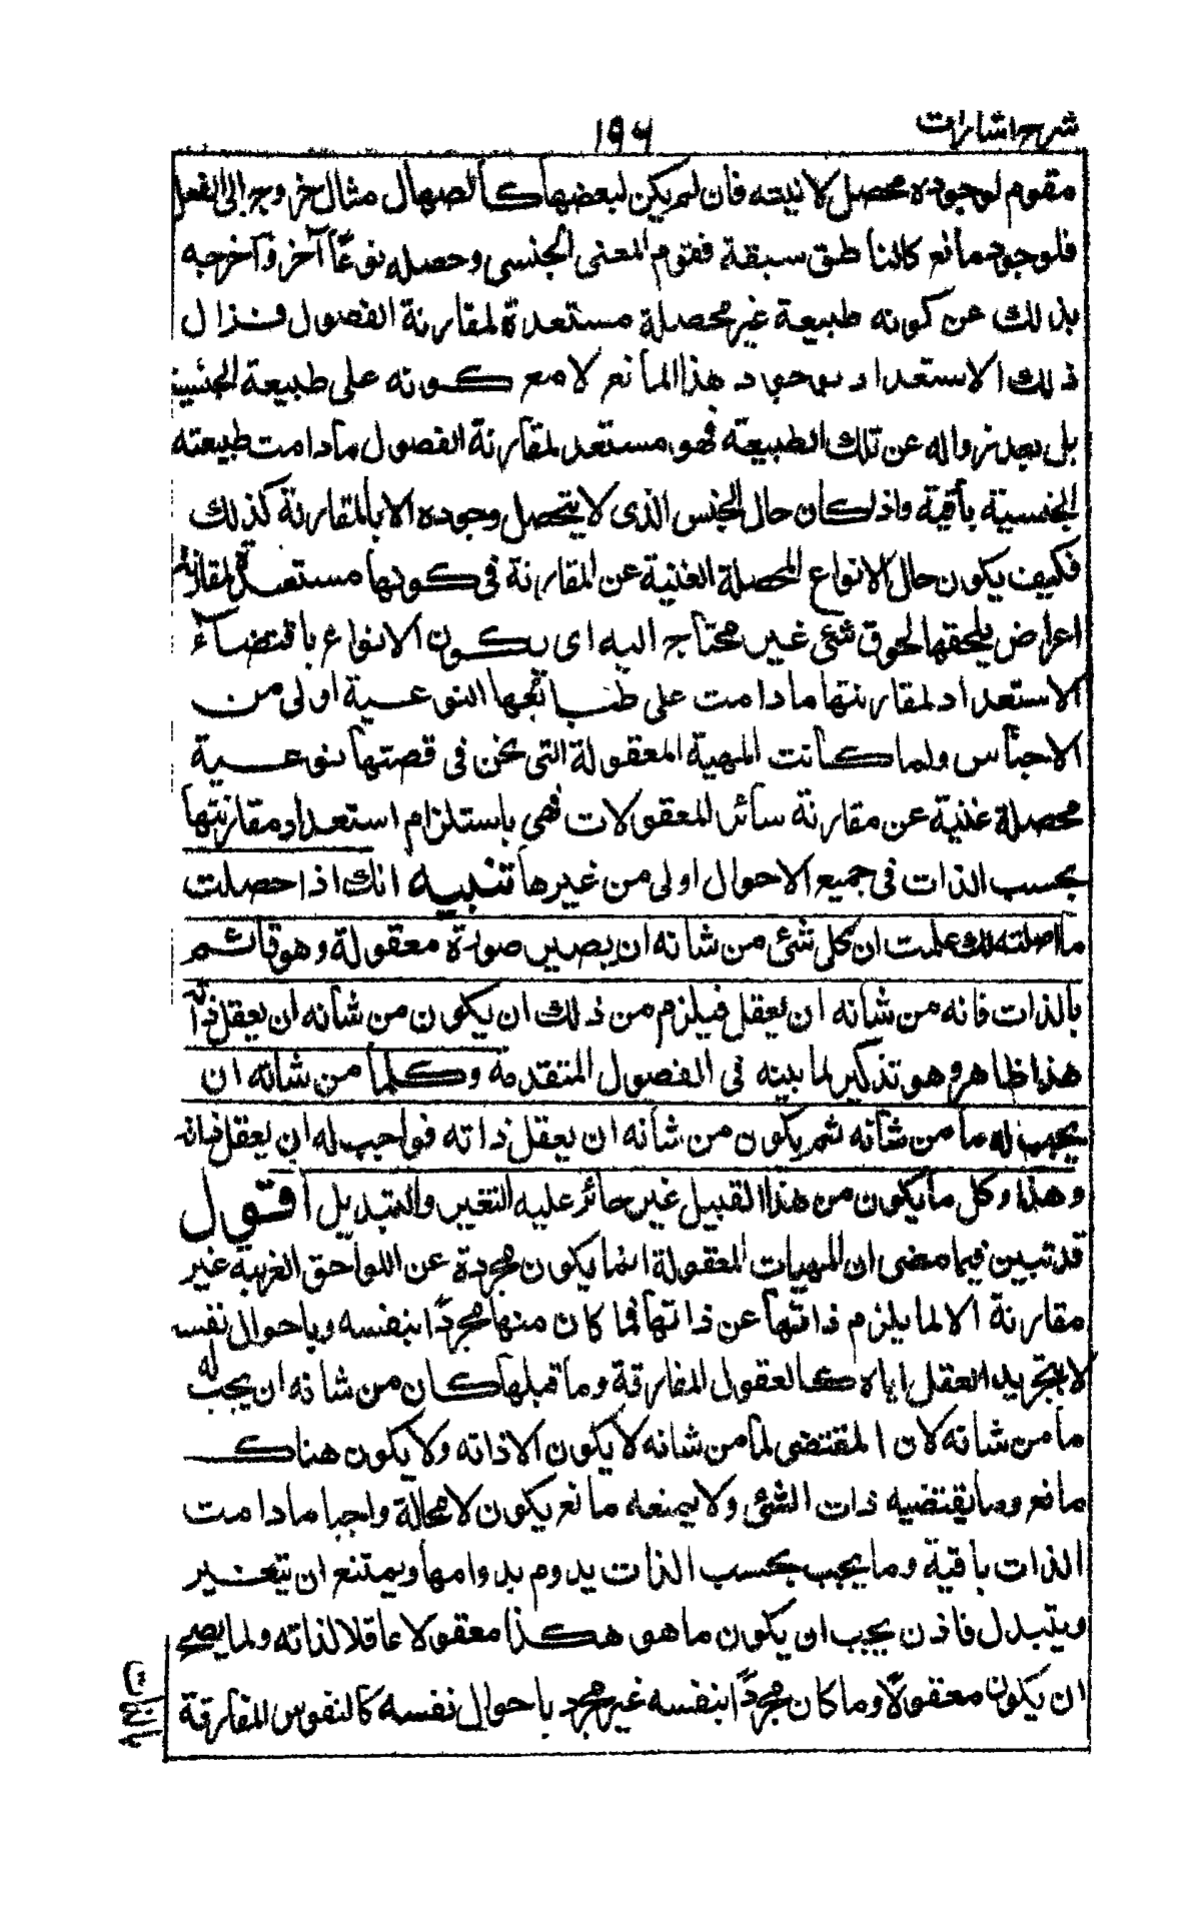 شرح اشارات
١٩٦
مقوم لوجوده محصل لانيته فان لم يكن لبعضها كالصهال مثال خروجه الى الفعل
فلوجود مانع كالناطق سبقه فقوم المعنى الجنسى وحصله نوعًا آخر وآخرجه
بذلك عن كونه طبيعة غير محصلة مستعدة لمقارنة الفصول فزال
ذلك الاستعداد بوجود هذا المانع لا مع كونه على طبيعة الجنسية
بل بعد زواله عن تلك الطبيعة فهو مستعد لمقارنة الفصول ما دامت طبيعته
الجنسية باقية واذ كان حال الجنس الذى لا يتحصل وجوده الا بالمقارنة كذلك
فكيف يكون حال الانواع المحصلة الغنية عن المقارنة فى كونها مستعدة لمقارنة
اعراض يلحقها لحوق شئ غير محتاج اليه اى يكون الانواع باقتضاء
الاستعداد لمقارنتها ما دامت على طبائعها النوعية اولى من
الاجناس ولما كانت المهية المعقولة التى نحن فى قصتها نوعية
محصلة غنية عن مقارنة سائر المعقولات فهى باستلزام استعداد مقارنتها
بحسب الذات فى جميع الاحوال اولى من غيرها تنبيه انك اذا حصلت
ما اصلته لك علمت ان كل شئ من شانه ان يصير صورة معقولة وهو قائم
بالذات فانه من شانه ان يعقل فيلزم من ذلك ان يكون من شانه ان يعقل ذاته
هذا ظاهر وهو تذكير لما بينه فى الفصول المتقدمة وكلما من شانه ان
يجب له ما من شانه ثم يكون من شانه ان يعقل ذاته فواجب له ان يعقل ذاته
وهذا وكل ما يكون من هذا القبيل غير جائز عليه التغير والتبديل اقول
قد تبين فيما مضى ان المهيات المعقولة انما يكون مجردة عن اللواحق الغريبة غير
مقارنة الا لما يلزم ذاتها عن ذاتها فما كان منها مجردًا بنفسه وباحوال نفسه
لا بتجريد العقل اياه كالعقول المفارقة وما قبلها كان من شانه ان يجب له
ما من شانه لان المقتضى لما من شانه لا يكون الا ذاته ولا يكون هناك
مانع وما يقتضيه ذات الشئ ولا يمنعه مانع يكون لا محالة واجبا ما دامت
الذات باقية وما يجب بحسب الذات يدوم بدوامها ويمتنع ان يتغير
ويتبدل فاذن يجب ان يكون ما هو هكذا معقولا عاقلا لذاته ولما يصح
ان يكون معقولًا وما كان مجردًا بنفسه غير مجرد باحوال نفسه كالنفوس المفارقة